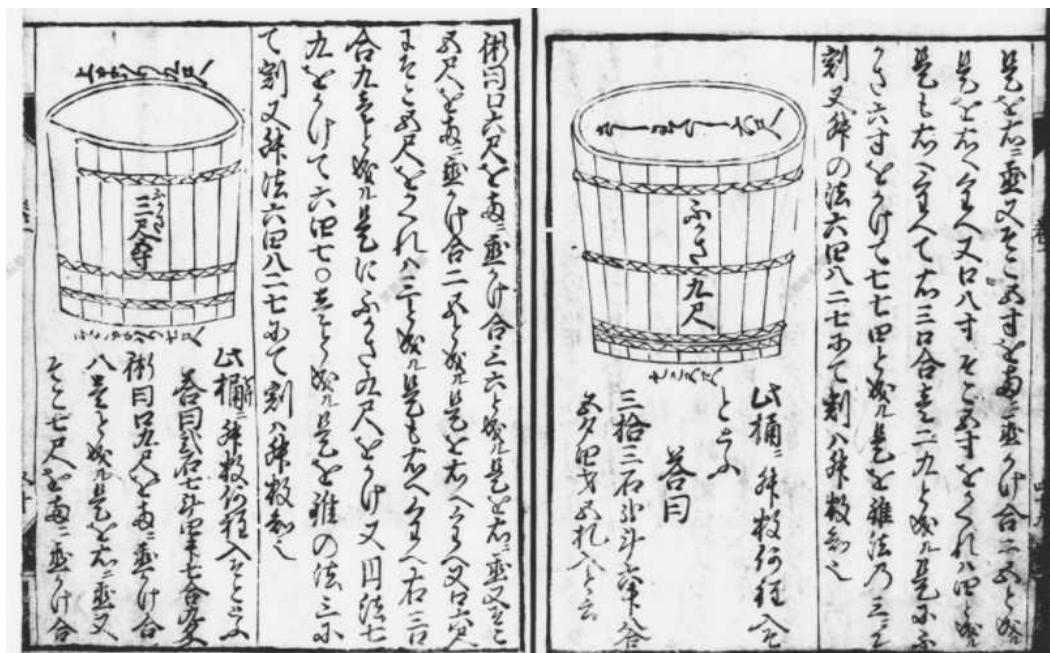 是を右ニ置又そこ五寸を両ニ置かけ合二五と成ル
是を右へくわへ又口八寸そこ五寸をかくれハ四と成ル
是も右へくわへて右三口合壱二九と成ル是にふ
かさ六寸をかけて七七四と成ル是を錐法乃三にて
割又舛の法六四八二七にて割ハ舛数知ル
ふかさ九尺
此桶ニ舛数何程入
とふ
答曰
三拾三石
五夕四才五札入と云
術曰口六尺を両ニ置かけ合三六と成ル是を右ニ置又そこ
五尺を両ニ置かけ合二五と成ル是を右へくわへ又口六尺
にそこ五尺をかくれハ三と成ル是も右へくわへ右三口
合九壱と成ル是にふかさ九尺をかけ又円法七
九をかけて六四七〇壱と成ル是を錐の法三に
て割又舛法六四八二七にて割ハ舛数知ル
ふかさ
此桶ニ舛数何程入そととふ
答曰弐石七斗四升七合
術曰口九尺を両ニ置かけ合
八壱と成ル是を右ニ置又
そこ七尺を両ニ置かけ合